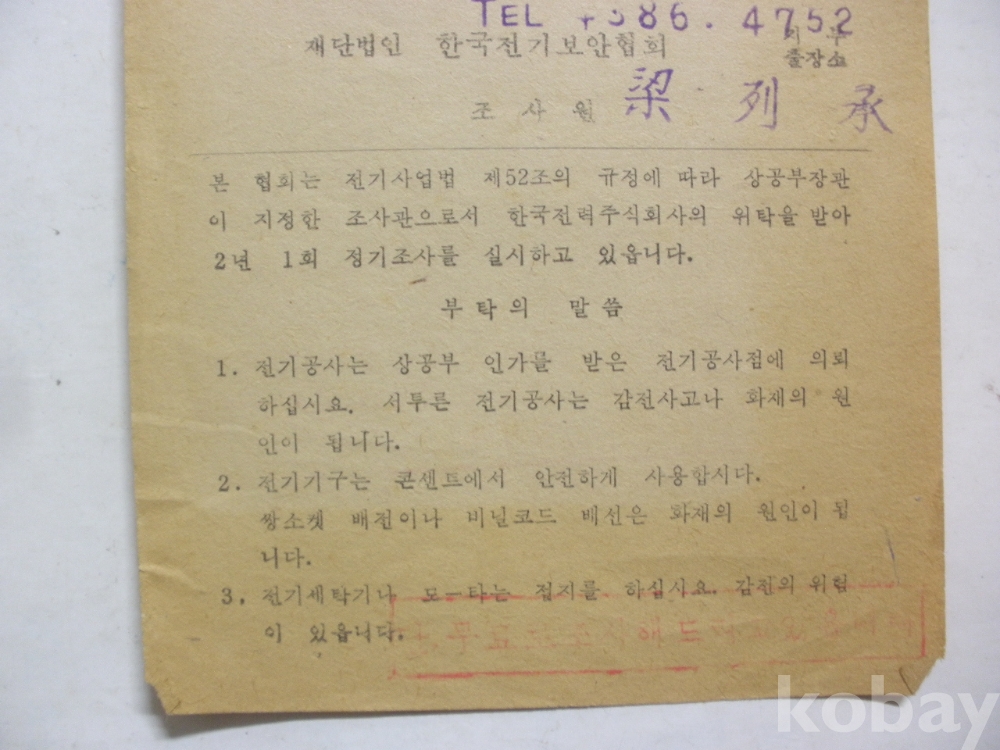 TEL 586. 4752
재단법인 한국전기보안협회 지부
출장소
조 사 원 梁 列 承
본 협회는 전기사업법 제52조의 규정에 따라 상공부장관
이 지정한 조사관으로서 한국전력주식회사의 위탁을 받아
2년 1회 정기조사를 실시하고 있읍니다.
부탁의 말씀
1. 전기공사는 상공부 인가를 받은 전기공사점에 의뢰
하십시요. 서투른 전기공사는 감전사고나 화재의 원
인이 됩니다.
2. 전기기구는 콘센트에서 안전하게 사용합시다.
쌍소켓 배전이나 비닐코드 배선은 화재의 원인이 됩
니다.
3. 전기세탁기나 모ー타는 접지를 하십시요. 감전의 위험
이 있읍니다.
kobay